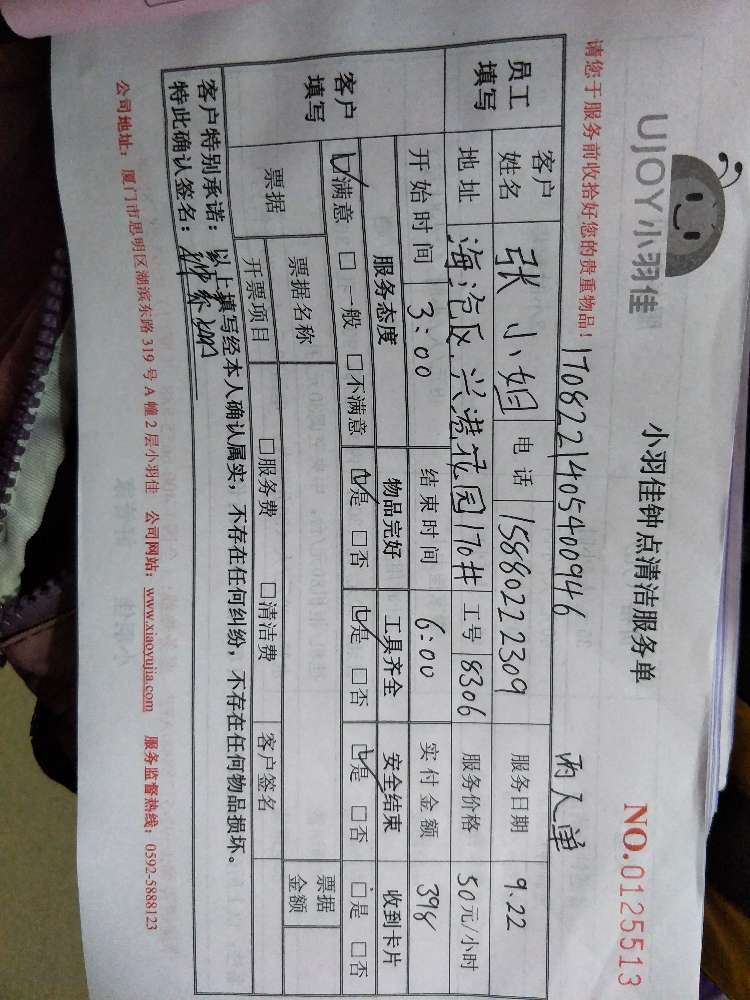 UJOY小羽佳
小羽佳钟点清洁服务单
NO.0125513
请您于服务前收拾好您的贵重物品！
170822140540​0946 两人单
员工填写
客户姓名 张小姐 电话 15880222309 服务日期 9.22
地址 海沧区.兴港花园170# 工号 8306 服务价格 50元/小时
开始时间 3:00 结束时间 6:00 实付金额 398
客户填写
服务态度 物品完好 工具齐全 安全结束 收到卡片
☑满意 □一般 □不满意 ☑是 □否 ☑是 □否 ☑是 □否 □是 □否
票据 票据名称 票据金额
开票项目 □服务费 □清洁费 客户签名
客户特别承诺：以上填写经本人确认属实，不存在任何纠纷，不存在任何物品损坏。
特此确认签名：
公司地址：厦门市思明区湖滨东路 319 号 A 幢 2 层小羽佳 公司网站：www.xiaoyujia.com 服务监督热线：0592-5888123